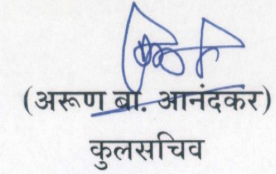 (अरूण बा. आनंदकर)
कुलसचिव